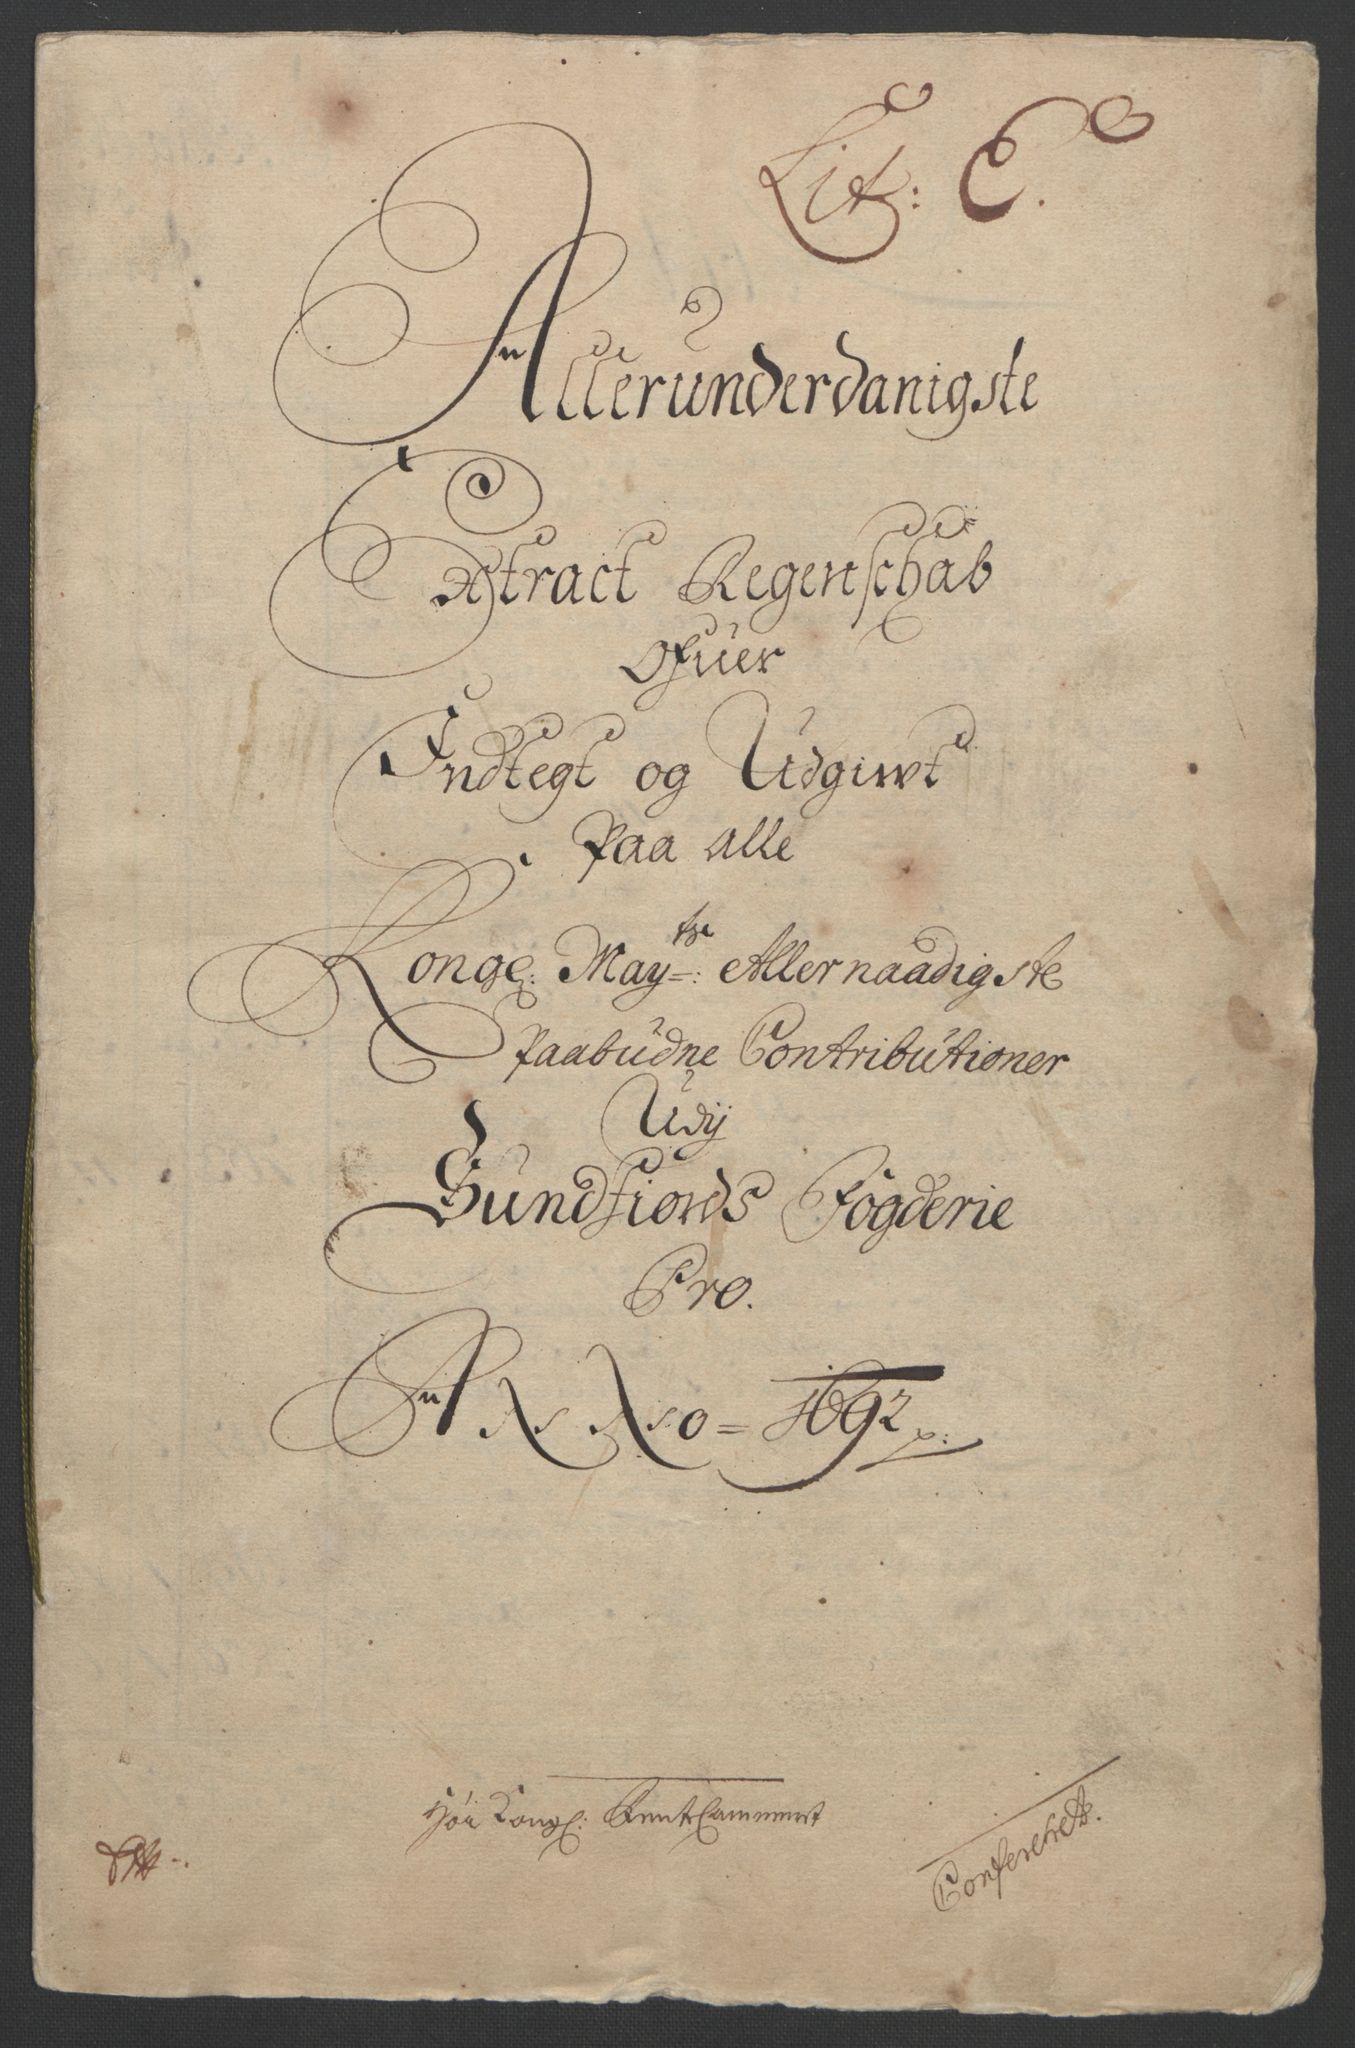 Lit: C.
Allerunderdanigste
Extract Regenschab
Ofuer
Indtegt og Udgiwt
Paa alle
Konge: May=tz: Allernaadigste
Paabudne Contributioner
Udij
Sundfiords Fogderie
Pro.
ANNO = 1692
Kongl: RentCammeret
Confereret.